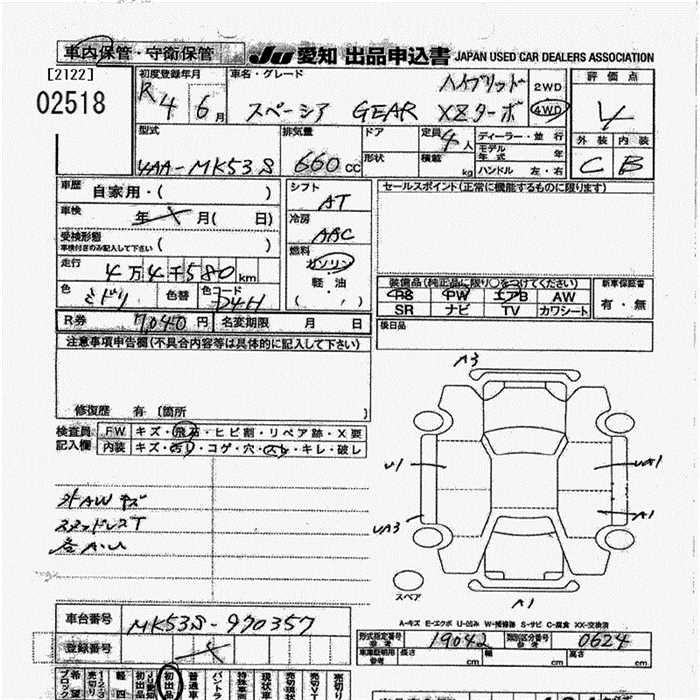 車内保管・守衛保管 JU 愛知 出品申込書 JAPAN USED CAR DEALERS ASSOCIATION
[2122]
02518
初度登録年月 車名・グレード ハイブリッド 2WD 評価点
R4 6月 スペーシア GEAR XZターボ 4WD
型式 排気量 ドア 定員 4人 ディーラー・並行
モデル年式 年
4AA-MK53S 660cc 形状 積載 kg ハンドル 左・右
外装 内装
C B
車歴 自家用・( ) シフト AT セールスポイント(正常に機能するものに限ります)
車検 年 月( 日) 冷房 AAC
受検形態 車検付きのみ記入して下さい ( )
燃料 ガソリン・
走行 4万4千580km 軽油
( , )
装備品(純正品に限り○をつけてください) 新車保証書
PS PW エアB AW 有・無
SR ナビ TV カワシート
色 ミドリ 色替 色コード D4H
R券 7,040円 名変期限 月 日
後日品
注意事項申告欄(不具合内容等は具体的に記入して下さい)
修復歴 有 [箇所 ]
検査員記入欄 FW キズ・飛石・ヒビ割・リペア跡・X要
内装 キズ・汚れ・コゲ・穴・スレ・キレ・破レ
A3
U1
UA1
UA3
A1
外AWキズ
スタッドレスT
各A.U
スペア
A1
A-キズ E-エクボ U-凹み W-補修跡 S-サビ C-腐食 XX-交換済
車台番号 MK53S-970357
登録番号
形式指定番号 参考 19042 類別区分番号 参考 0624
車庫証明用 参考 長さ cm 幅 cm 高さ cm